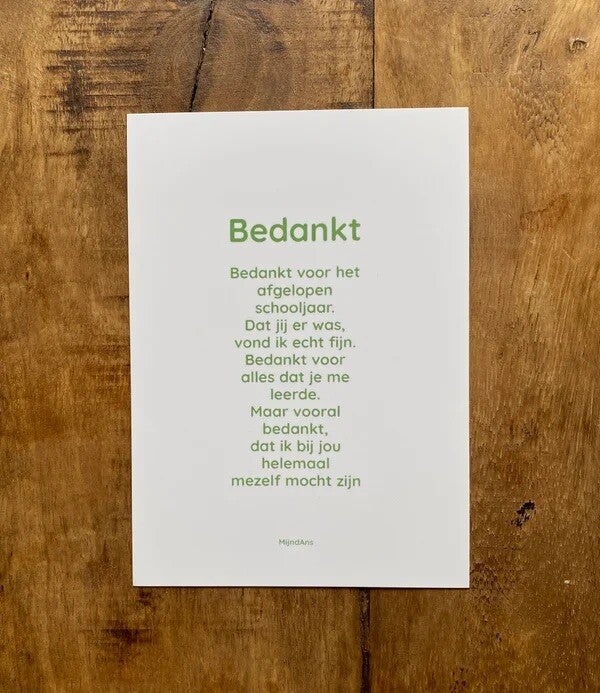 Bedankt
Bedankt voor het
afgelopen
schooljaar.
Dat jij er was,
vond ik echt fijn.
Bedankt voor
alles dat je me
leerde.
Maar vooral
bedankt,
dat ik bij jou
helemaal
mezelf mocht zijn
MijndAns